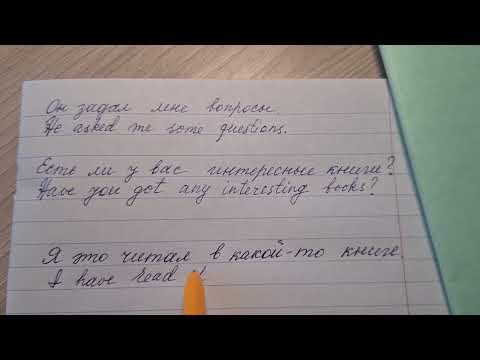 Он задал мне вопросы
He asked me some questions.
Есть ли у вас интересные книги?
Have you got any interesting books?
Я это читал в какой-то книге.
I have read